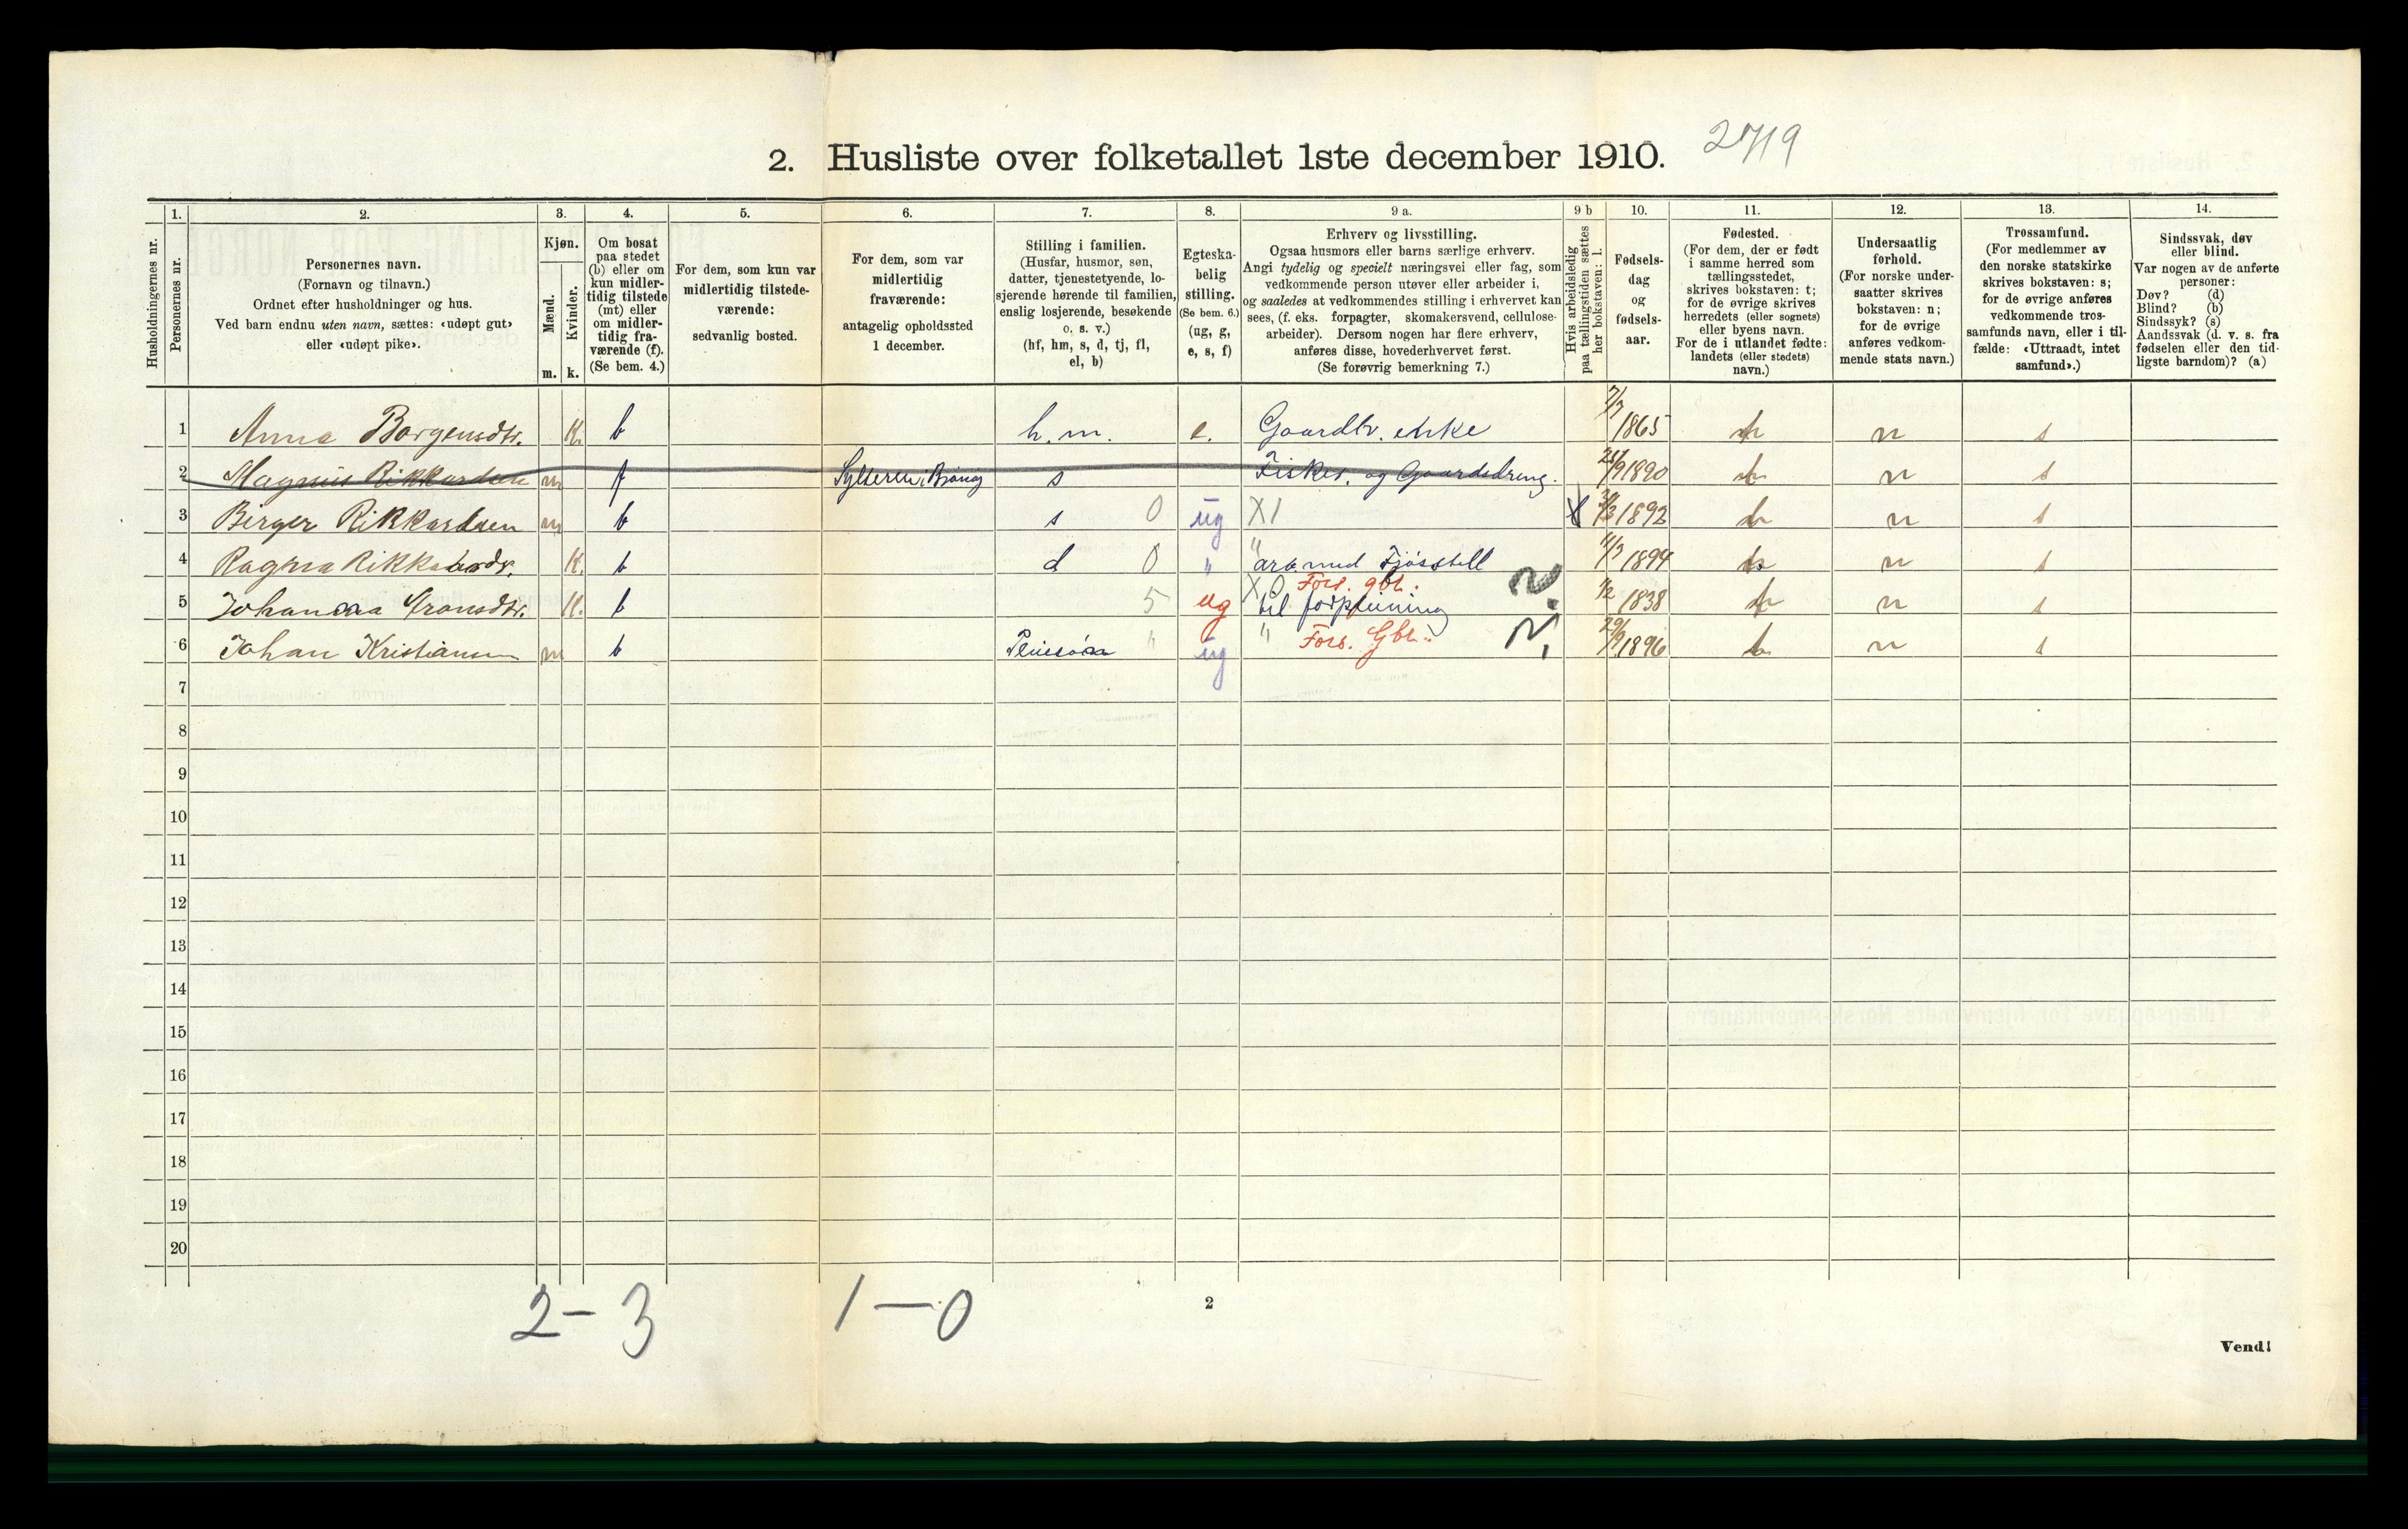 2. Husliste over folketallet 1ste december 1910. 2719
Husholdningernes nr.
1.
Personernes nr.
2.
Personernes navn.
(Fornavn og tilnavn.)
Ordnet efter husholdninger og hus.
Ved barn endnu uten navn, sættes: «udøpt gut»
eller «udøpt pike».
3.
Kjøn.
Mænd.
Kvinder.
m. k.
4.
Om bosat
paa stedet
(b) eller om
kun midler-
tidig tilstede
(mt) eller
om midler-
tidig fra-
værende (f).
(Se bem. 4.)
5.
For dem, som kun var
midlertidig tilstede-
værende:
sedvanlig bosted.
6.
For dem, som var
midlertidig
fraværende:
antagelig opholdssted
1 december.
7.
Stilling i familien.
(Husfar, husmor, søn,
datter, tjenestetyende, lo-
sjerende hørende til familien,
enslig losjerende, besøkende
o. s. v.)
(hf, hm, s, d, tj, fl,
el, b)
8.
Egteska-
belig
stilling.
(Se bem. 6.)
(ug, g,
e, s, f)
9 a.
Erhverv og livsstilling.
Ogsaa husmors eller barns særlige erhverv.
Angi tydelig og specielt næringsvei eller fag, som
vedkommende person utøver eller arbeider i,
og saaledes at vedkommendes stilling i erhvervet kan
sees, (f. eks. forpagter, skomakersvend, cellulose-
arbeider). Dersom nogen har flere erhverv,
anføres disse, hovederhvervet først.
(Se forøvrig bemerkning 7.)
9 b
Hvis arbeidsledig
paa tællingstiden sættes
her bokstaven: l.
10.
Fødsels-
dag
og
fødsels-
aar.
11.
Fødested.
(For dem, der er født
i samme herred som
tællingsstedet,
skrives bokstaven: t;
for de øvrige skrives
herredets (eller sognets)
eller byens navn.
For de i utlandet fødte:
landets (eller stedets)
navn.)
12.
Undersaatlig
forhold.
(For norske under-
saatter skrives
bokstaven: n;
for de øvrige
anføres vedkom-
mende stats navn.)
13.
Trossamfund.
(For medlemmer av
den norske statskirke
skrives bokstaven: s;
for de øvrige anføres
vedkommende tros-
samfunds navn, eller i til-
fælde: «Uttraadt, intet
samfund».)
14.
Sindssvak, døv
eller blind.
Var nogen av de anførte
personer:
Døv? (d)
Blind? (b)
Sindssyk? (s)
Aandssvak (d. v. s. fra
fødselen eller den tid-
ligste barndom)? (a)
1 Anna Borgensdtr. K. b h.m. e. Gaardbr. enke 7/7 1865 n s
2 Magnus Rikkardsen m f s Fisker. og Gaardsdreng. 1890 n s
3 Birger Rikkardsen m b s 0 ug X1 1892 n s
4 Ragna Rikkardsdr. K. b d 0 " " arb med Fjøsstell 1894 n s
5 Johanna K. b 5 ug X0 Fors. gbr. til forpleining 1/2 1838 n s
6 Johan Kristiansen m b Pleiesøn " ug " Fors. Gbr. 29/9 1896 n s
7
8
9
10
11
12
13
14
15
16
17
18
19
20
2 - 3 1 - 0
2
Vend!